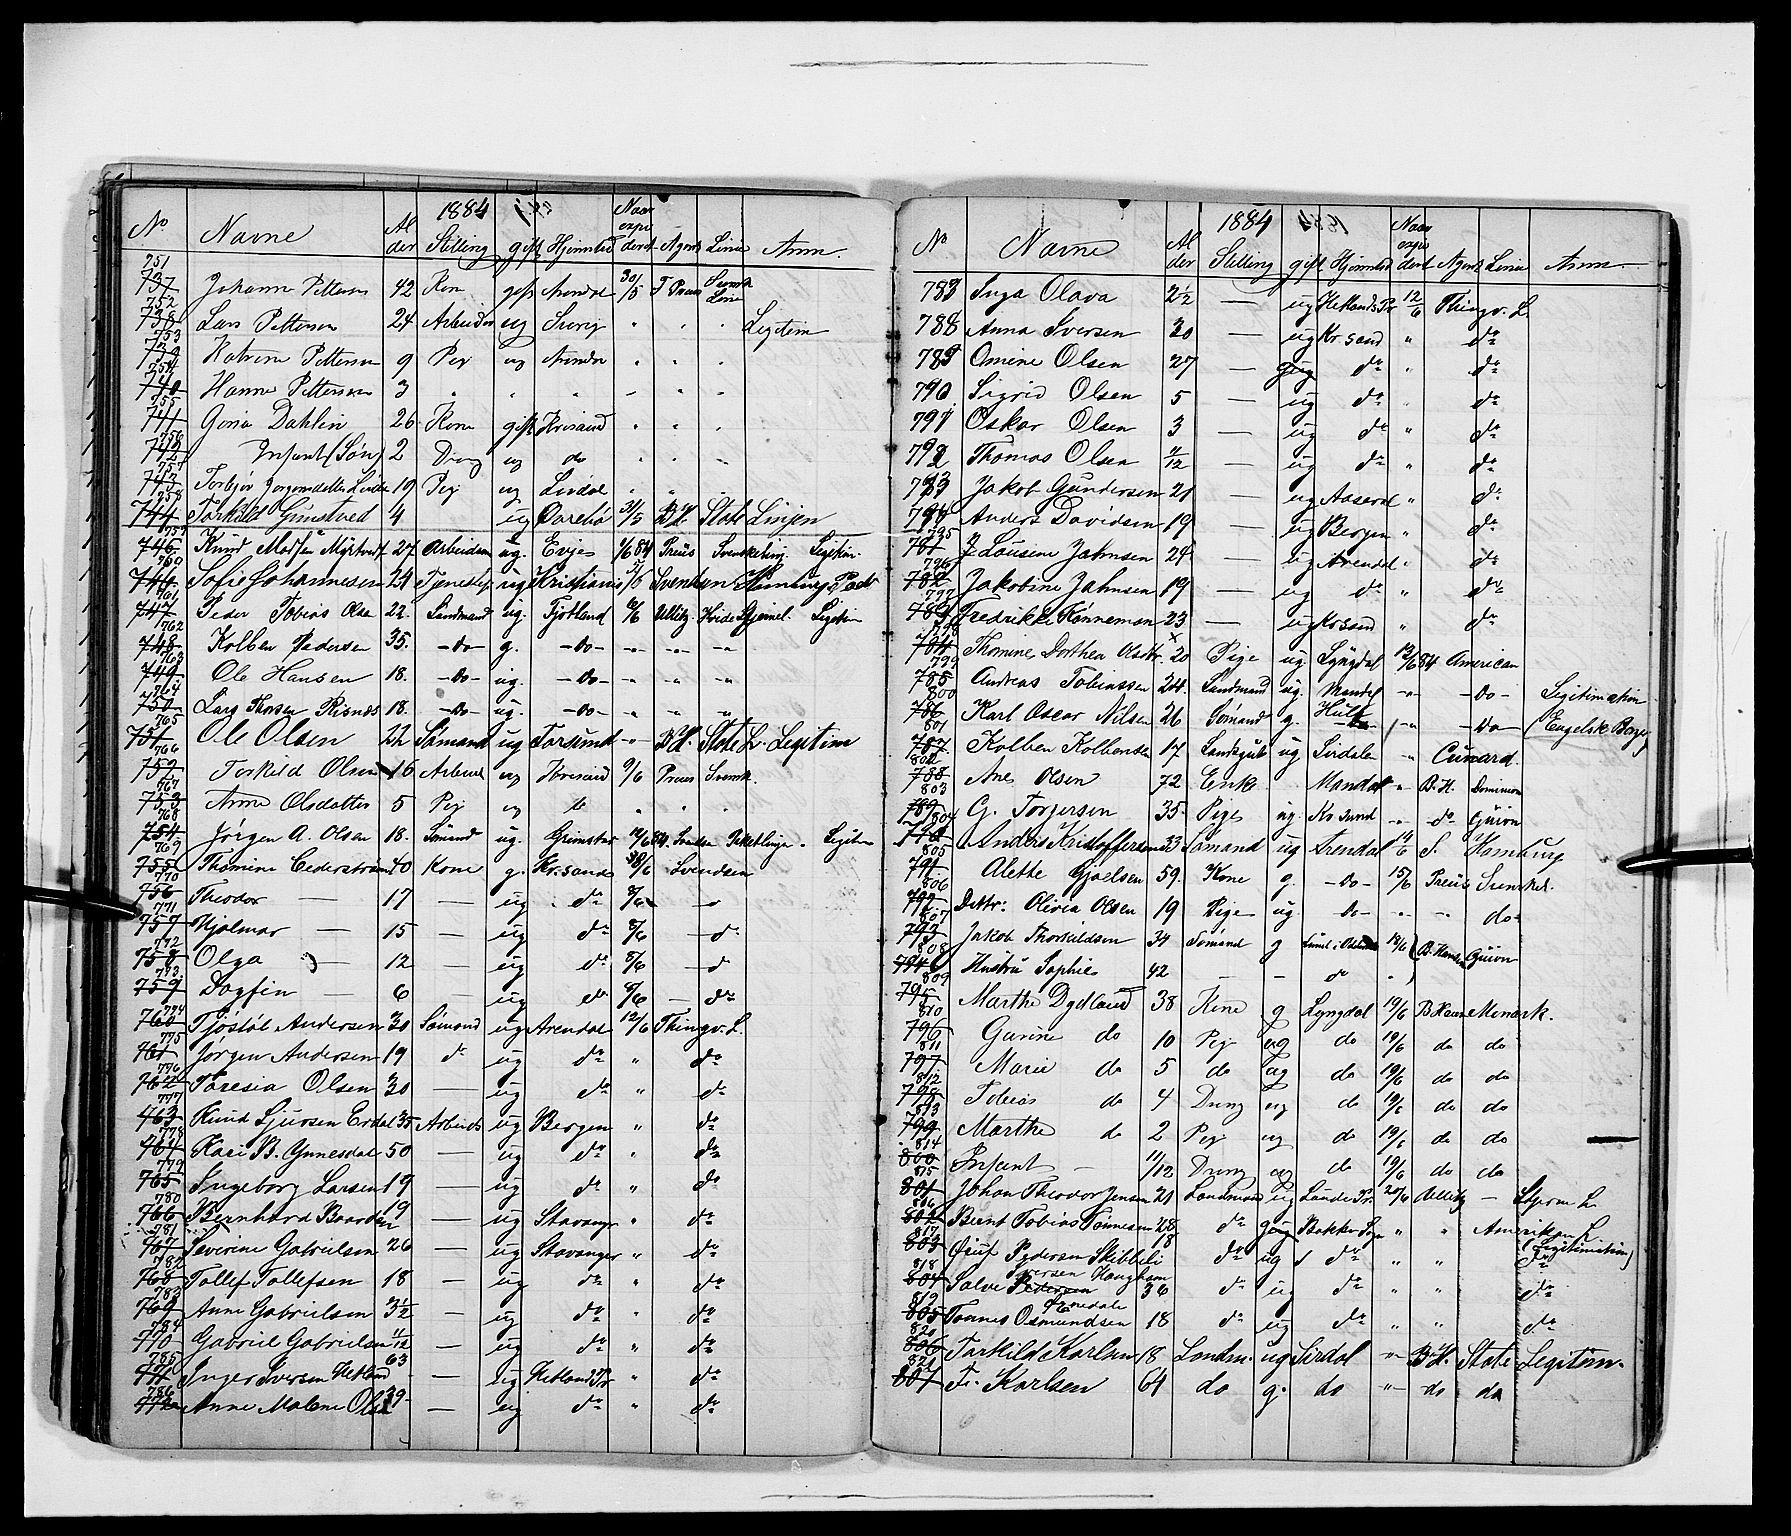 1884
No Navne Alder Stilling gift Hjemsted Naar expederet Agent Linie Anm.
751 737 Johanne Pettersen 42 Kone gift Arendal 30/5 F Preus Svensk Linie
752 738 Lars Pettersen 24 Arbeider ug Sverig " " " Legitim
753 739 Katrine Pettersen 9 Pig ug Arendal " " "
754 740 Hanne Pettersen 3 " " " " " "
755 741 Goria Dahlin 26 Kone gift Krisand " " "
756 742 Infant (Søn) 2 Dreng ug do " " "
757 743 Torbjør 19 Pig ug Livdal " " "
758 744 Torkild Gunstved 4 ug Øvrebø 31/5 BH. State Linjen
759 745 Knud 27 Arbeidsm ug. Evje 1/6 84 Preus Svenskeling. Legitim.
760 746 Sofie Johannesen 24 Tjenestep ug Kristians /6 Svendsen Hamburg Pack
761 747 Peder Tobias Olsen 22. Landmand ug. Fjotland 6/6 Ullitz Hvide Stjernel. Legitim
762 748 Kolben Pedersen 35. -do- g. -do- -"- -"- -"-
763 749 Ole Hansen 18. -do- ug. -do- -" -" -"
764 750 Lars Risnæs 18. -do- ug. -do- -" -" -"
765 751 Ole Olsen 22 Sømand ug Farsund -"- BH. State L. Legitim
766 752 Torkild Olsen 16 Arbeid ug Krisand 9/6 Preus Svensk.
767 753 Anne Olsdatter 5 Pig ug do " " "
768 754 Jørgen A. Olsen 18. Sømand ug. Grimstad /6 84. Svendsen Paketlinje. Legitim
769 755 Thomine Cederstrøm 40 Kone g. Kr.sand /6 Svendsen
770 756 Theodor — 17 — ug do 8/6 — o
771 757 Hjalmar — 15 — ug do 8/6 — do
772 758 Olga 12 — ug do 8/6 — d
773 759 Dagfin — 6 — ug do 8/6 — do
774 760 Tjøstøl Andersen 30 Sømand ug Arendal 12/6 Thingv. L.
775 761 Jørgen Andersen 19 do ug do " do
776 762 Taresia Olsen 30 — ug do " do
777 763 Knud Sjursen Erdal 35 Arbeids ug Bergen " do
778 764 Kari B. Gunnesdal 50 — ug do " do
779 765 Ingeborg Larsen 19 — ug do " do
780 766 Bernhard Baardsen 19 — ug Stavanger " do
781 767 Severine Gabrielsen 26 — ug Stavanger " do
782 768 Tollef Tollefsen 18 — ug do " do
783 769 Anne Gabrielsen 3½ — ug do " do
784 770 Gabriel Gabrielsen 1/12 — ug do " do
785 771 Inger Iversen Hetland 63 — ug Hetland Pr " do
786 772 Anne Malene Olsen 39 — ug do " do
1884
No Navne Alder Stilling gift Hjemsted Naar expederet Agent Linie Anm.
783 Inga Olava 2½ — ug Hetlands Pr 12/6 Thingv. L.
788 Anna Iversen 30 — ug Kr.sand " do
789 Omine Olsen 27 — gug do " do
790 Sigrid Olsen 5 — ug do " do
791 Oskar Olsen 3 — ug do " do
792 Thomas Olsen /12 — ug do " do
793 Jakob Gundersen 21 — ug Aaseral " do
794 Anders Davidsen 19 — ug Bergen " do
795 781 J. Lousine Jahnsen 24 — ug Arendal " do
796 782 Jakobine Jahnsen 19 — ug do " do
797 783 Fredrikk Kønneman 23 — ug Krsand " do
798 784 Thomine Dorthea Olsdtr. 20 Pige ug Lyngdal 12/6 84 American
799 785 Andreas Tobiassen 24. Landmand ug. Mandal -"- -do- Legitimation
800 786 Karl Oscar Nilsen 26 Sømand g. Hull -"- -do- (Engelsk Borger)
801 787. Kolben Kolbensen 17 Landsgut ug Sirdalen -" Cunard.
802 788 Ane Olsen 72 Enke Mandal " B.H. Dominion
803 789 G. Torjersen 35. Pige ug. Kr sand -" do Guion
804 790 Anders Kristoffersen 33 Sømand ug Arendal 14/6 S. Hamburg
805 791. Alette Gjaelsen 59. Kone g. -do- 15/6 Preus Svenskel.
806 792. Dattr: Olivia Olsen 19 Pige ug. -do- -"- -"- do-
807 793 Jakob Thorkildsen 34 Sømand g 18/6 B. Hansen Guion
808 794 Hustru Sophie 42 — - do "
809 795 Marthe Dydland 38 Kone g Lyngdal 19/6 B Hanse Monark.
810 796 Gurine do 10 Pig ug do 19/6 do do
811 797 Marie do 5 do ug do 19/6 do do
812 798 Tobias do 4 Dreng ug do 19/6 do do
813 799 Marthe do 2 Pig ug do 19/6 do do
814 800 Infant — 11/12 Dreng ug do 19/6 do do
815 801 Johan Theodor Jensen 21 Landmand ug Lunde Pr. 20/6 Ullitz — Stjern L
816 802 Bernt Tobias Tønnesen 28 do gug Bakke Sogn " " Amerikan L. (Legitimation)
817 803 Pedersen Skibbeli 18 do ug do " " do
818 804 Salve Pedersen Iversen Haughom 36 do ug do " " do
819 805 Tønnes Osmundsen 18 do ug do " " do
820 806 Torkild Karlsen 18 Landm. ug Sirdal -"- BH. State Legitim.
821 807 T. Karlsen 61 do g. do -"- do do